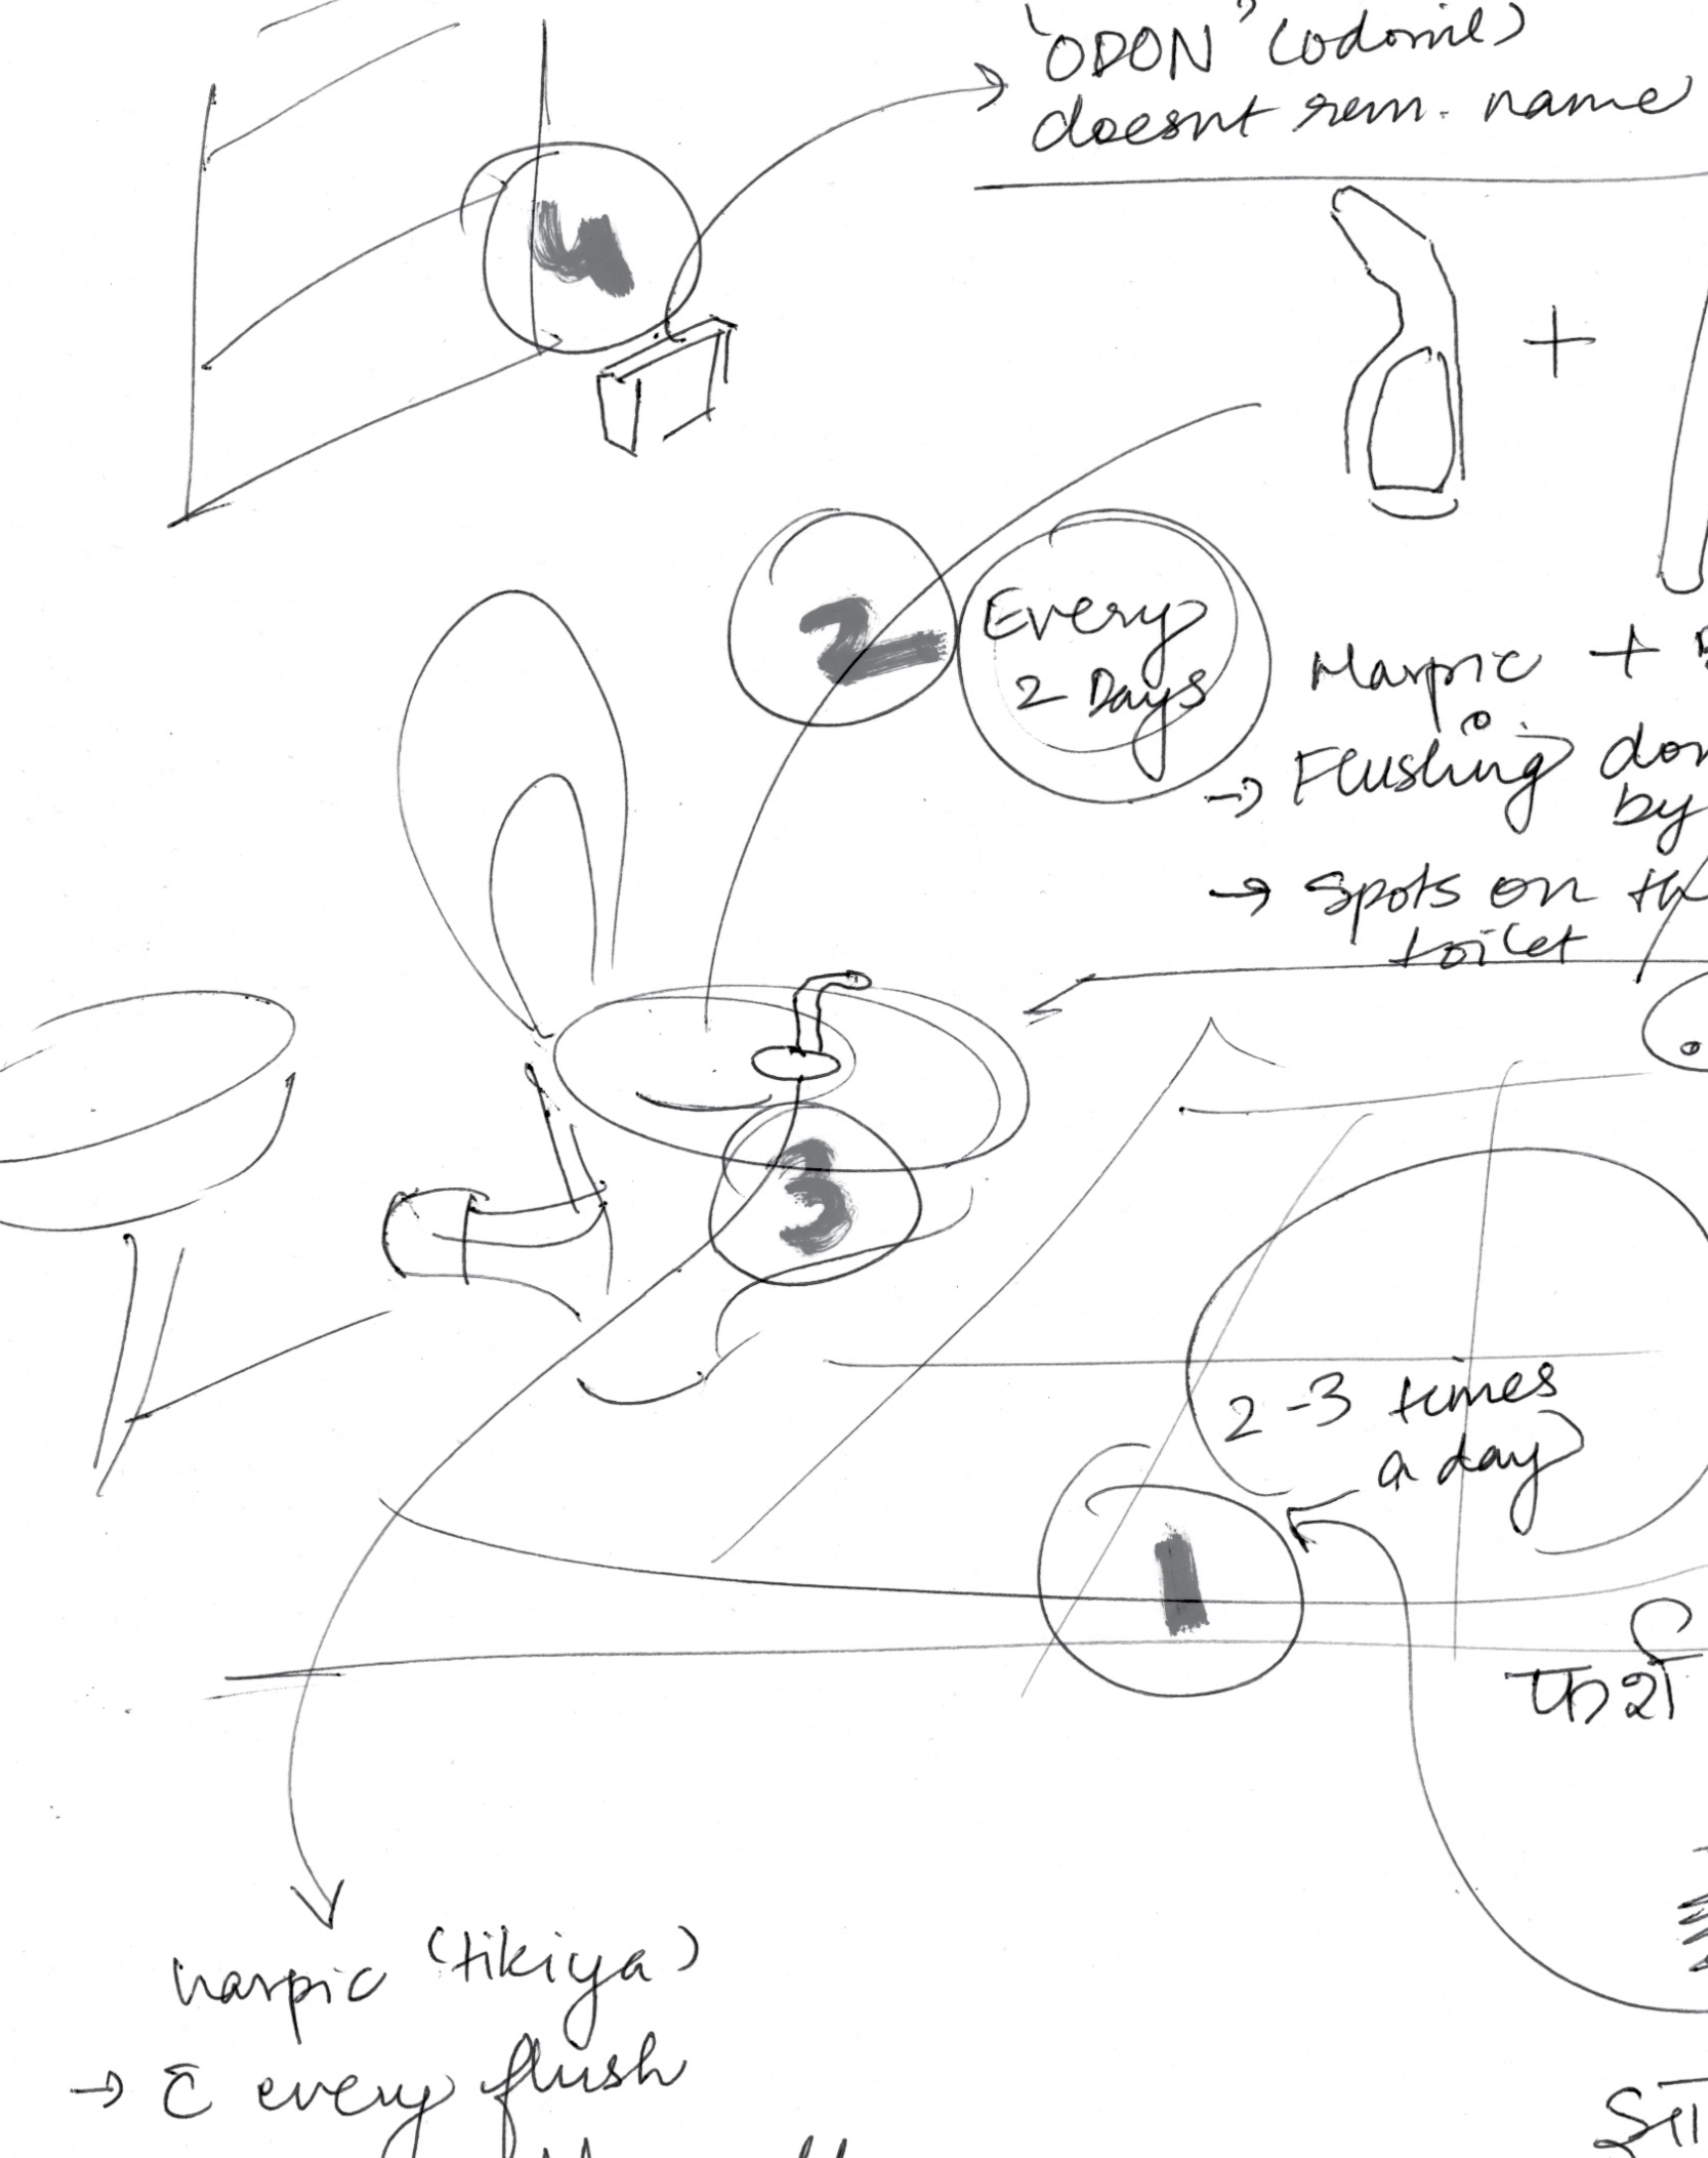 'ODON' (odonil)
doesnt rem. name
4
2
Every
2 Days
Harpic +
→ Flushing
by
→ spots on
toilet
3
2-3 times
a day
1
harpic (tikiya)
→ c̄ every flush